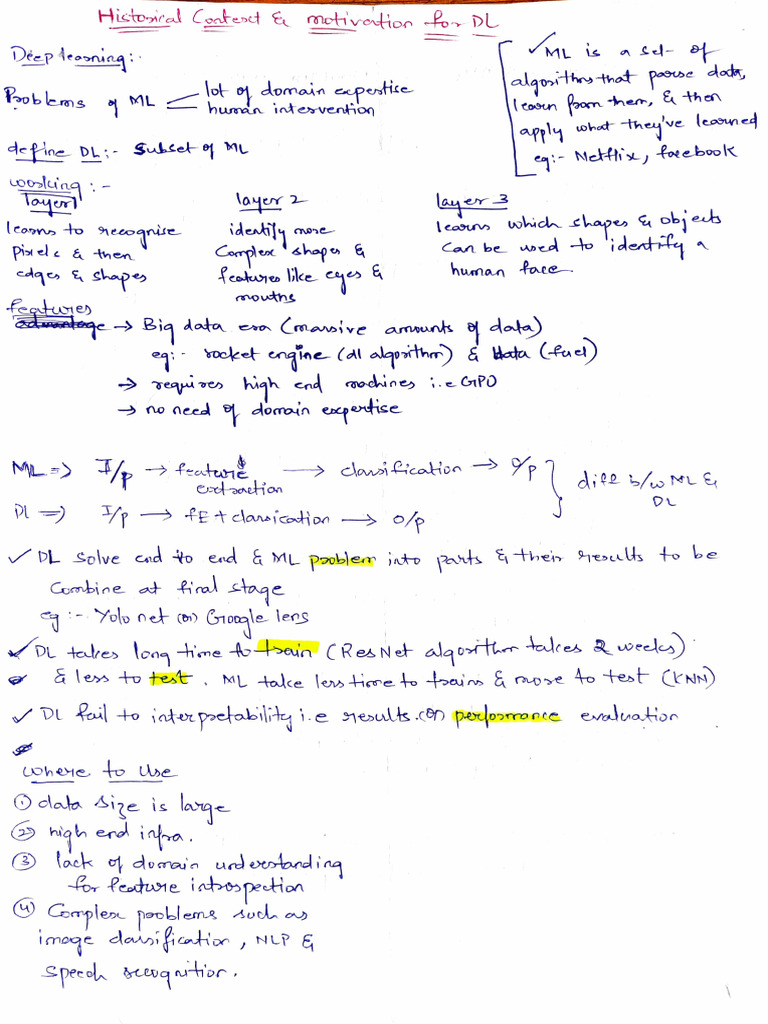 Historical Context & motivation for DL
Deep learning:-
Problems of ML
lot of domain expertise
human intervention
✓ML is a set of
algorithms that parse data,
learn from them, & then
apply what they've learned
eg:- Netflix, facebook
define DL:- Subset of ML
working :-
layer1
learns to recognise
pixels & then
edges & shapes
layer 2
identify more
Complex shapes &
features like eyes &
mouths
layer 3
learns which shapes & objects
can be used to identify a
human face.
features
advantage → Big data era (massive amounts of data)
eg:- rocket engine (dl algorithm) & data (fuel)
→ requires high end machines i.e GPU
→ no need of domain expertise
ML => I/p → feature extraction → classification → O/p
DL => I/p → fE + classication → O/p
diff b/w ML &
DL
✓ DL solve end to end & ML problem into parts & their results to be
Combine at final stage
eg :- Yolo net (or) Google lens
✓ DL takes long time to train (ResNet algorithm takes 2 weeks)
& less to test. ML take less time to train & more to test (KNN)
✓ DL fail to interpretability i.e results. on performance evaluation
where to use
① data size is large
② high end infra.
③ lack of domain understanding
for feature introspection
④ Complex problems such as
image classification, NLP &
speech recognition.